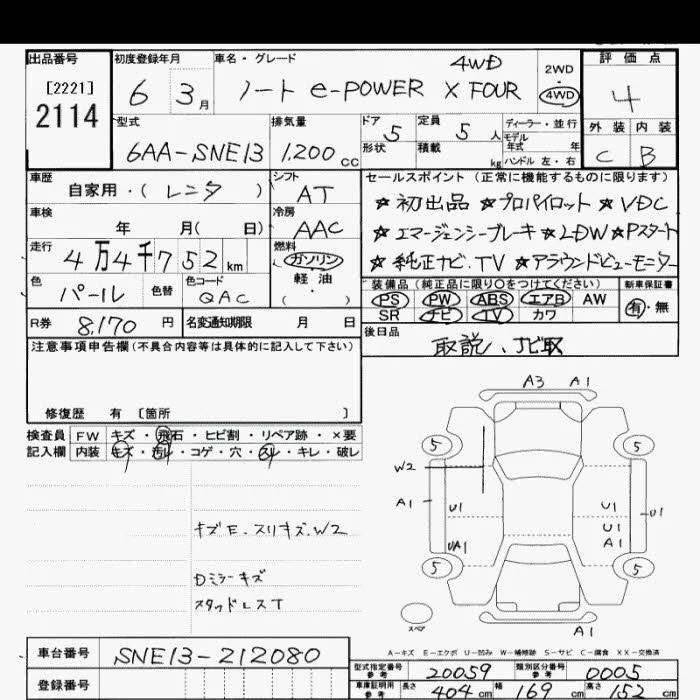 出品番号 初度登録年月 車名・グレード 4WD 2WD 評価点
[2221] 2114 6 3月 ノート e-POWER X FOUR 4WD 4
型式 排気量 ドア 5 定員 5人 ディーラー・並行 外装 内装
6AA-SNE13 1,200cc 形状 積載 kg モデル年式 年 C B
ハンドル 左・右
車歴 シフト セールスポイント(正常に機能するものに限ります)
自家用・(レンタ) AT ★初出品 ★プロパイロット ★VDC
車検 冷房
年 月(日) AAC ★エマージェンシーブレーキ ★LDW ★Pスタート
走行 燃料
4万4千752km ガソリン ★純正ナビ.TV ★アラウンドビューモニター
色 色替 色コード 軽油 装備品(純正品に限り○をつけてください) 新車保証書
パール QAC ( ・ ) PS PW ABS エアB AW 有・無
R券 8,170円 名変通知期限 月 日 SR ナビ TV カワ
注意事項申告欄(不具合内容等は具体的に記入して下さい) 後日品
取説、ナビ取
修復歴 有 〔箇所 〕
検査員 FW キズ・飛石・ヒビ割・リペア跡・×要
記入欄 内装 キズ・汚レ・コゲ・穴・スレ・キレ・破レ
A3 A1
5 5
W2
A1 U1 U1 U1
U1
UA1 A1
5 5
スペア
A1
キズE.スリキズ.W2
Dミラーキズ
スタッドレスT
A-キズ E-エクボ U-凹み W-補修跡 S-サビ C-腐食 XX-交換済
車台番号 SNE13-212080
型式指定番号 参考 20059 類別区分番号 参考 0005
登録番号 車庫証明用 参考 長さ 404cm 幅 169cm 高さ 152cm